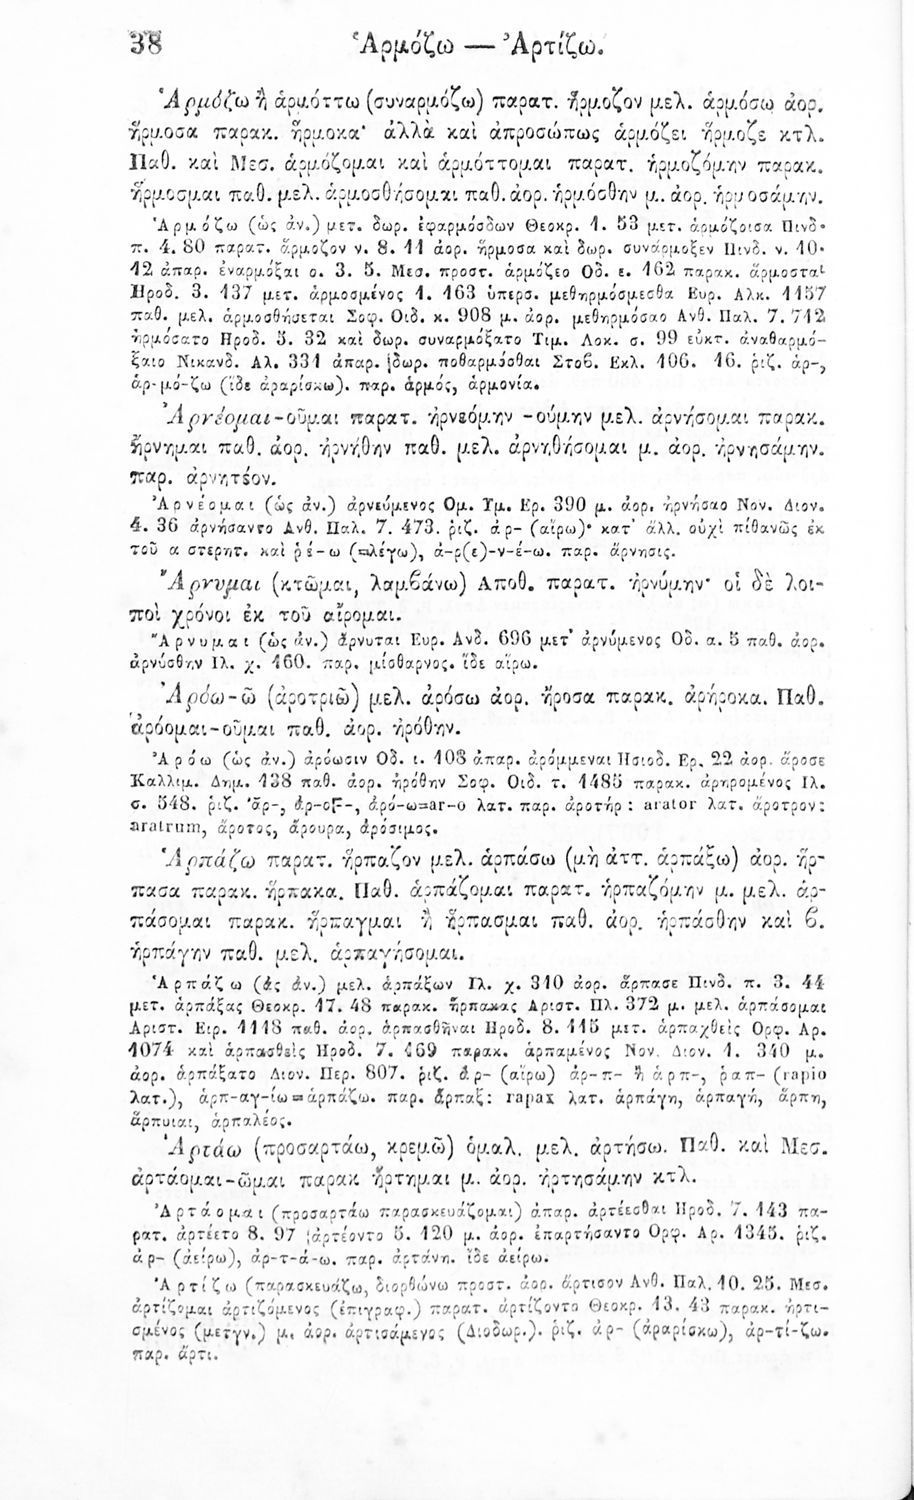 38 Ἁρμόζω — Ἀρτίζω.
Ἁρμόζω ἢ ἁρμόττω (συναρμόζω) παρατ. ἥρμοζον μελ. ἁρμόσω ἀορ.
ἥρμοσα παρακ. ἥρμοκα· ἀλλὰ καὶ ἀπροσώπως ἁρμόζει ἥρμοζε κτλ.
Παθ. καὶ Μεσ. ἁρμόζομαι καὶ ἁρμόττομαι παρατ. ἡρμοζόμην παρακ.
ἥρμοσμαι παθ. μελ. ἁρμοσθήσομαι παθ. ἀορ. ἡρμόσθην μ. ἀορ. ἡρμοσάμην.
Ἁρμόζω (ὡς ἀν.) μετ. δωρ. ἐφαρμόσδων Θεοκρ. 1. 53 μετ. ἁρμόζοισα Πινδ·
π. 4. 80 παρατ. ἅρμοζον ν. 8. 11 ἀορ. ἥρμοσα καὶ δωρ. συνάρμοξεν Πινδ. ν. 10·
12 ἀπαρ. ἐναρμόξαι ο. 3. 5. Μεσ. προστ. ἁρμόζεο Οδ. ε. 162 παρακ. ἅρμοσται
Ηροδ. 3. 137 μετ. ἁρμοσμένος 1. 163 ὑπερσ. μεθηρμόσμεσθα Ευρ. Αλκ. 1157
παθ. μελ. ἁρμοσθήσεται Σοφ. Οιδ. κ. 908 μ. ἀορ. μεθηρμόσαο Ανθ. Παλ. 7. 712
ἡρμόσατο Ηροδ. 5. 32 καὶ δωρ. συναρμόξατο Τιμ. Λοκ. σ. 99 εὐκτ. ἀναθαρμό-
ξαιο Νικανδ. Αλ. 331 ἀπαρ. δωρ. ποθαρμόσθαι Στοβ. Εκλ. 106. 16. ῥιζ. ἁρ-,
ἁρ-μό-ζω (ἴδε ἀραρίσκω). παρ. ἁρμός, ἁρμονία.
Ἀρνέομαι-οῦμαι παρατ. ἠρνεόμην -ούμην μελ. ἀρνήσομαι παρακ.
ἤρνημαι παθ. ἀορ. ἠρνήθην παθ. μελ. ἀρνηθήσομαι μ. ἀορ. ἠρνησάμην.
παρ. ἀρνητέον.
Ἀρνέομαι (ὡς ἀν.) ἀρνεύμενος Ομ. Υμ. Ερ. 390 μ. ἀορ. ἠρνήσαο Νον. Διον.
4. 36 ἀρνήσαντο Ανθ. Παλ. 7. 473. ῥιζ. ἀρ- (αἴρω)· κατ' ἄλλ. οὐχὶ πίθανῶς ἐκ
τοῦ α στερητ. καὶ ῥέ-ω (=λέγω), ἀ-ρ(ε)-ν-έ-ω. παρ. ἄρνησις.
Ἄρνυμαι (κτῶμαι, λαμβάνω) Αποθ. παρατ. ἠρνύμην· οἱ δὲ λοι-
ποὶ χρόνοι ἐκ τοῦ αἴρομαι.
Ἄρνυμαι (ὡς ἀν.) ἄρνυται Ευρ. Ανδ. 696 μετ· ἀρνύμενος Οδ. α. 5 παθ. ἀορ.
ἀρνύσθην Ιλ. χ. 160. παρ. μίσθαρνος. ἴδε αἴρω.
Ἀρόω-ῶ (ἀροτριῶ) μελ. ἀρόσω ἀορ. ἤροσα παρακ. ἀρήροκα. Παθ.
ἀρόομαι-οῦμαι παθ. ἀορ. ἠρόθην.
Ἀρόω (ὡς ἀν.) ἀρόωσιν Οδ. ι. 108 ἀπαρ. ἀρόμμεναι Ησιοδ. Ερ. 22 ἀορ. ἄροσε
Καλλιμ. Δημ. 138 παθ. ἀορ. ἠρόθην Σοφ. Οιδ. τ. 1485 παρακ. ἀρηρομένος Ιλ.
σ. 548. ῥιζ. ἀρ-, ἀρ-οϜ-, ἀρό-ω=ar-o λατ. παρ. ἀροτήρ : arator λατ. ἄροτρον:
aratrum, ἄροτος, ἄρουρα, ἀρόσιμος.
Ἁρπάζω παρατ. ἥρπαζον μελ. ἁρπάσω (μὴ ἀττ. ἁρπάξω) ἀορ. ἥρ-
πασα παρακ. ἥρπακα. Παθ. ἁρπάζομαι παρατ. ἡρπαζόμην μ. μελ. ἁρ-
πάσομαι παρακ. ἥρπαγμαι ἢ ἥρπασμαι παθ. ἀορ. ἡρπάσθην καὶ β.
ἡρπάγην παθ. μελ. ἁρπαγήσομαι.
Ἁρπάζω (ὡς ἀν.) μελ. ἁρπάξων Ιλ. χ. 310 ἀορ. ἅρπασε Πινδ. π. 3. 44
μετ. ἁρπάξας Θεοκρ. 17. 48 παρακ. ἥρπακας Αριστ. Πλ. 372 μ. μελ. ἁρπάσομαι
Αριστ. Ειρ. 1118 παθ. ἀορ. ἁρπασθῆναι Ηροδ. 8. 115 μετ. ἁρπαχθεὶς Ορφ. Αρ.
1074 καὶ ἁρπασθεὶς Ηροδ. 7. 169 παρακ. ἁρπαμένος Νον. Διον. 1. 340 μ.
ἀορ. ἁρπάξατο Διον. Περ. 807. ῥιζ. ἀρ- (αἴρω) ἀρ-π- ἢ ἁρπ-, ῥαπ- (rapio
λατ.), ἁρπ-αγ-ίω=ἁρπάζω. παρ. ἅρπαξ: rapax λατ. ἁρπάγη, ἁρπαγή, ἅρπη,
ἅρπυιαι, ἁρπαλέος.
Ἀρτάω (προσαρτάω, κρεμῶ) ὁμαλ. μελ. ἀρτήσω. Παθ. καὶ Μεσ.
ἀρτάομαι-ῶμαι παρακ ἤρτημαι μ. ἀορ. ἠρτησάμην κτλ.
Ἀρτάομαι (προσαρτάω παρασκευάζομαι) ἀπαρ. ἀρτέεσθαι Ηροδ. 7. 143 πα-
ρατ. ἀρτέετο 8. 97 ἀρτέοντο 5. 120 μ. ἀορ. ἐπαρτήσαντο Ορφ. Αρ. 1345. ῥιζ.
ἀρ- (ἀείρω), ἀρ-τ-ά-ω. παρ. ἀρτάνη. ἴδε ἀείρω.
Ἀρτίζω (παρασκευάζω, διορθώνω προστ. ἀορ. ἄρτισον Ανθ. Παλ. 10. 25. Μεσ.
ἀρτίζομαι ἀρτιζόμενος (ἐπιγραφ.) παρατ. ἀρτίζοντο Θεοκρ. 13. 43 παρακ. ἠρτι-
σμένος (μετγν.) μ. ἀορ. ἀρτισάμενος (Διοδωρ.). ῥιζ. ἀρ- (ἀραρίσκω), ἀρ-τί-ζω.
παρ. ἄρτι.